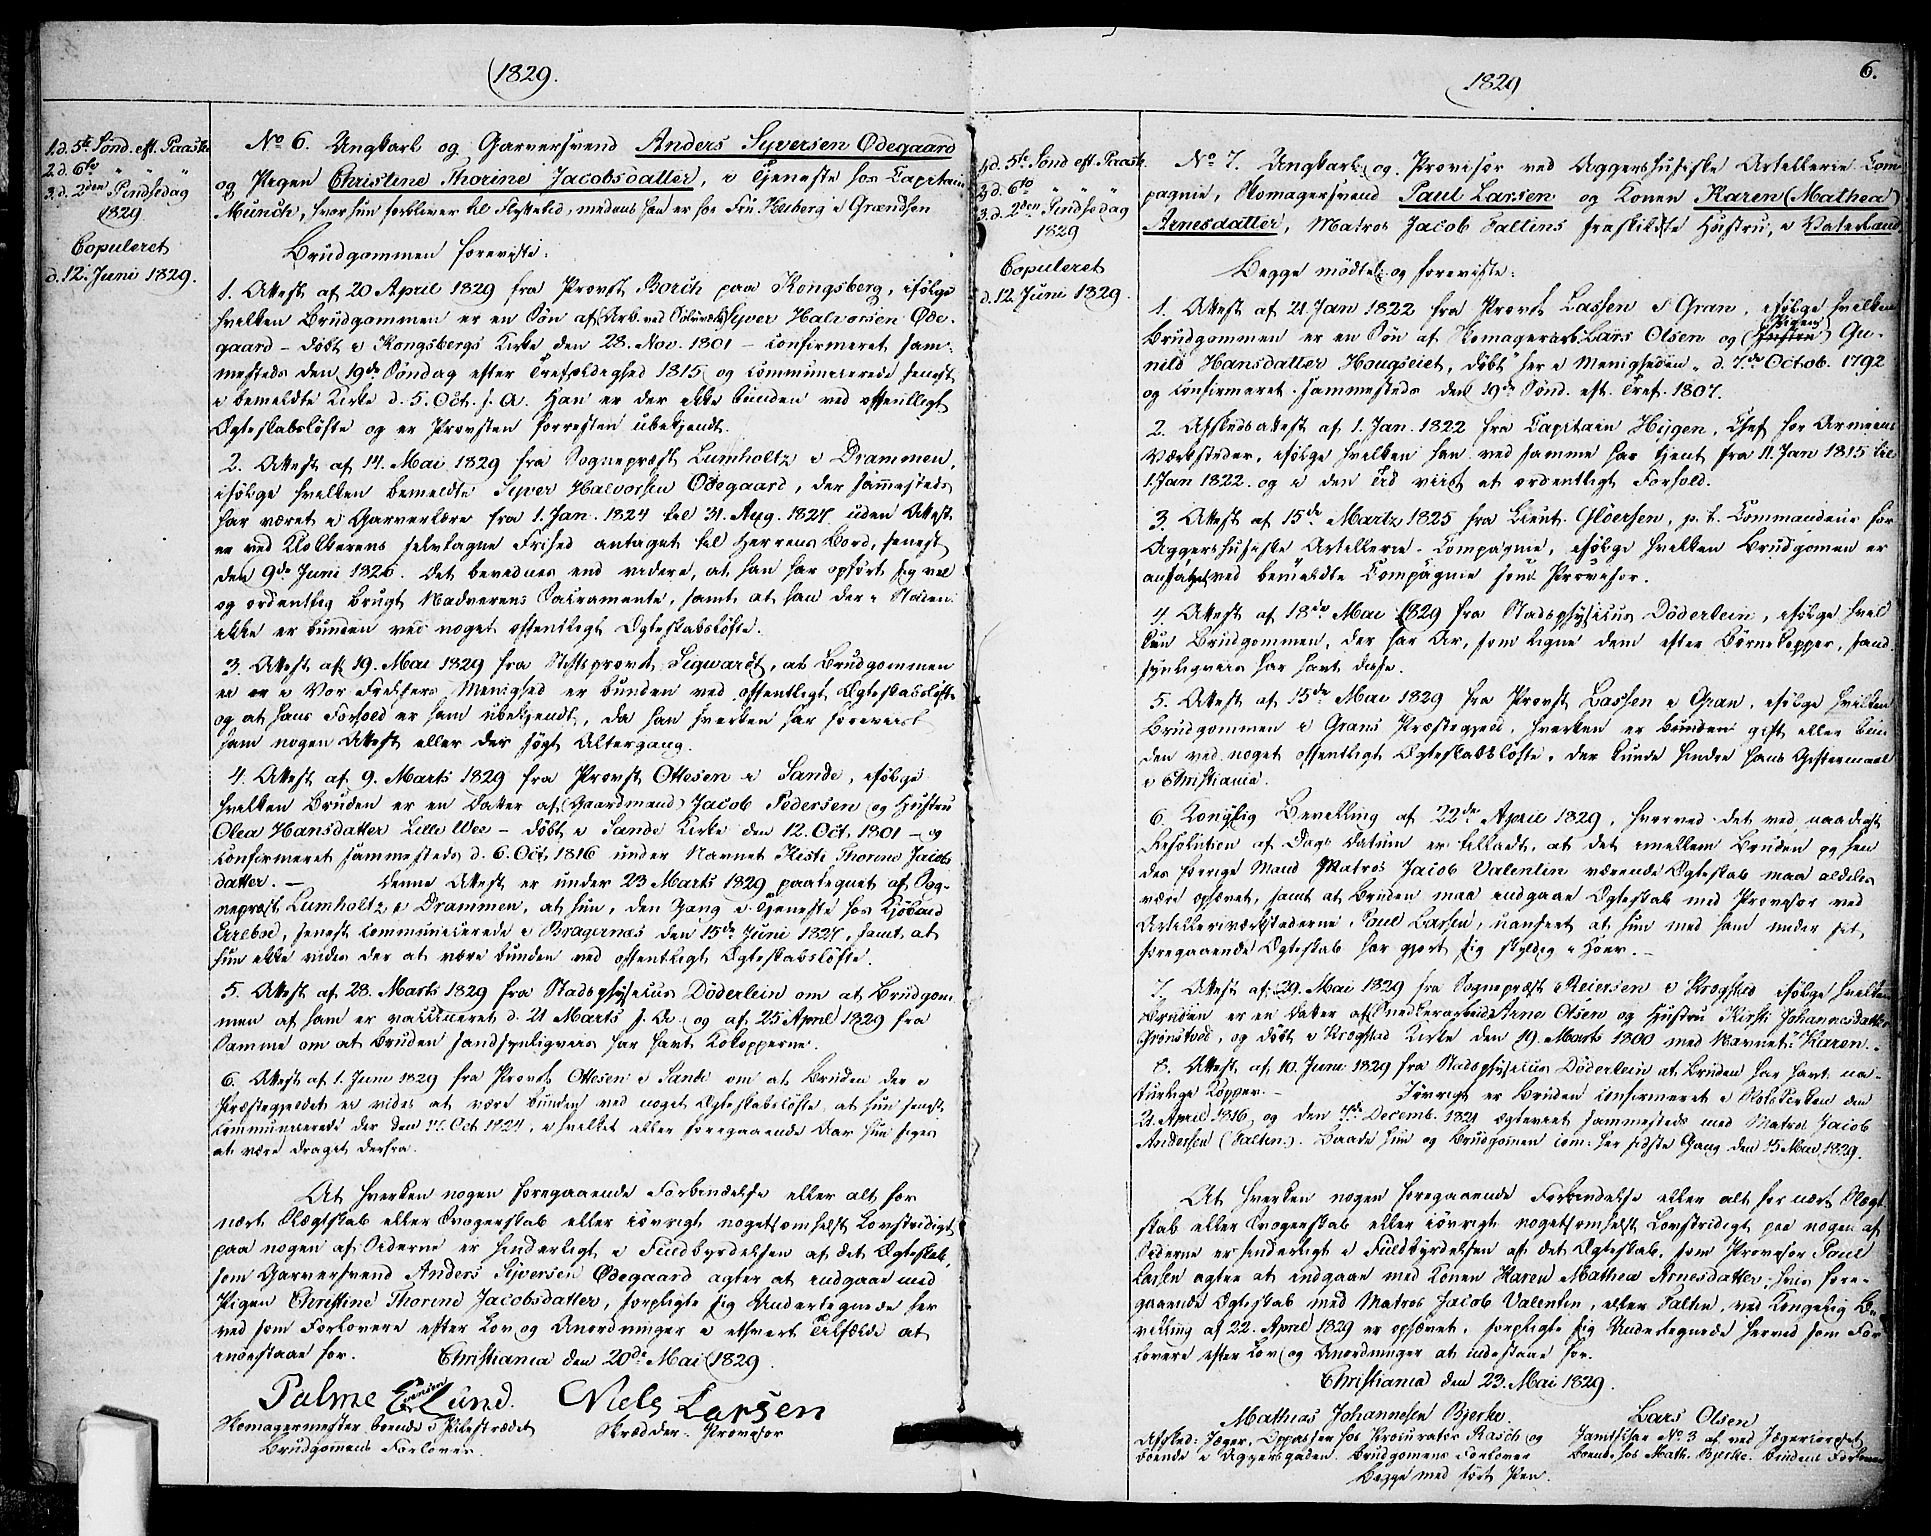 1829.
1. d. 5te Sønd. eft. Paaske
2. d. 6te " "
3. d. 2den Pindsedag
1829
Copuleret
d. 12. Juni 1829.
No 6. Ungkarl og Garversvend Anders Syversen Ødegaard
og Pigen Christine Thorine Jacobsdatter, i Tjeneste hos Capitain
Munch, hvor hun forbliver til Flyttetid, medens han er hos Fru Huberg i Grændsen
Brudgommen foreviste:
1. Attest af 20 April 1829 fra Provst Borch paa Kongsberg, ifølge
hvilken Brudgommen er en Søn af Arb. ved Sølvværk. Syver Halvorsen Øde-
gaard – døbt i Kongsbergs Kirke den 28. Nov. 1801 – confirmeret sam-
mesteds den 19de Søndag efter Trefoldighed 1815 og communicerede senest
i bemeldte Kirke d. 5. Oct. s. A. Han er der ikke bunden ved offentligt
Ægteskabsløfte og er Provsten forresten ubekjendt.
2. Attest af 14. Mai 1829 fra Sognepræst Lumholtz i Drammen,
ifølge hvilken bemeldte Syver Halvorsen Ødegaard, der sammesteds
har været i Garverlære fra 1. Jan. 1824 til 31. Aug. 1827 uden Attest
er ved Klokkerens selvtagne Frihed antaget til Herrens Bord, senest
den 9de Juni 1826. Det bevidnes end videre, at han har opført sig vel
og ordentlig brugt Nadverens Sacramente, samt at han der i Staden
ikke er bunden ved noget offentligt Ægteskabsløfte.
3. Attest af 19. Mai 1829 fra Stiftsprovst Sigwardt, at Brudgommen
ei er i Vor Frelsers Menighed er bunden ved offentligt Ægteskabsløfte
og at hans Forhold er ham ubekjendt, da han hverken har forevist
ham nogen Attest eller der søgt Altergang.
4. Attest af 9. Marts 1829 fra Provst Ottesen i Sande, ifølge
hvilken Bruden er en Datter af (Gaardmand) Jacob Pedersen og Hustru
Olea Hansdatter Lille Wee – døbt i Sande Kirke den 12. Oct. 1801 – og
confirmeret sammesteds d. 6. Oct. 1816 under Navnet Kisti Thorine Jacobs
datter. – Denne Attest er under 23 Marts 1829 paategnet af Sog-
nepræst Lumholtz i Drammen, at hun, den Gang i Tjeneste hos Kjøbmd
Errebøe, senest communicerede i Bragernes den 15de Juni 1827, samt at
hun ikke vides der at være bunden ved offentligt Ægteskabsløfte.
5. Attest af 28. Marts 1829 fra Stadsphysicus Döderlein om at Brudgom-
men af ham er vaccineret d. 21 Marts s. A. og af 25 April 1829 fra
Samme om at Bruden sandsynligviis har havt Kokopperne.
6. Attest af 1. Juni 1829 fra Provst Ottesen i Sande om at Bruden der i
Præstegjeldet ei vides at være bunden ved noget Ægteskabsløfte, at hun senest
communicerede der den Oct. 1824, i hvilket eller foregaaende Aar hun siges
at være draget derfra.
At hverken nogen foregaaende Forbindelse eller alt for
nært Slægtskab eller Svogerskab eller iøvrigt noget somhelst Lovstridigt
paa nogen af Siderne er hinderligt i Fuldbyrdelsen af det Ægteskab,
som Garversvend Anders Syversen Ødegaard agter at indgaae med
Pigen Christine Thorine Jacobsdatter, forpligte sig Undertegnede her
ved som Forlovere efter Lov og Anordninger i ethvert Tilfælde at
indestaae for. Christiania den 20de Mai 1829.
Palme Evensen Lund. Niels Larsen
Komagermester boende i Pilestrædet Skrædder-Provisor
Brudgomens Forlover.
1829
6.
1. d. 5te Sønd eft. Paask.
2. d. 6te " "
3. d. 2den Pindsedag
1829
Copuleret
d. 12 Juni 1829.
No 7. Ungkarl og Provisor ved Aggershusiske Artellerie Com
pagnie, Komagersvend Paul Larsen og Konen Karen (Mathea)
Arnesdatter, Matros Jacob Faltins fraskildte Hustru, i Vaterland
Begge mødte og foreviste:
1. Attest af 21 Jan 1822 fra Provst Lassen i Gran, ifølge hvilken
Brudgommen er en Søn af Komagerarb. Lars Olsen og Pigen Gu-
nild Hansdatter Hougseiet, døbt "her i Menigheden" d. 7de Octob. 1792
og confirmeret sammesteds den 19de Sønd. eft. Tref. 1807.
2. Afskedsattest af 1. Jan. 1822 fra Capitain Hijgen, Chef for Armeens
Værksteder, ifølge hvilken han ved samme har tjent fra 11 Jan 1815 til
1 Jan 1822 og i den Tid viist et ordentligt Forhold.
3. Attest af 15de Martz 1825 fra Lieut. Gldersen, p. t. Commandeur for
Aggershusiske Artellerie-Compagnie, ifølge hvilken Brudgomen er
ansat ved bemeldte Compagnie som Provisor.
4. Attest af 18de Mai 1829 fra Stadsphysicus Döderlein, ifølge hvil
ken Brudgommen, der har Ar, som ligne dem efter Børnekopper, sand-
synligviis har havt disse.
5. Attest af 15de Mai 1829 fra Provst Lassen i Gran, ifølge hvilken
Brudgommen i Grans Præstegjeld, hverken er bunden gift eller bun
den ved noget offentligt Ægteskabsløfte, der kunde hindre hans Giftermaal
i Christiania.
6. Kongelig Bevilling af 22de April 1829, hvorved det ved naadigst
Resolution af Dags Datum er tilladt, at det imellem Bruden og hen
des forrige Mand Matros Jacob Valentin værende Ægteskab maa aldeles
være ophævet, samt at Bruden maa indgaae Ægteskab med Provisor ved
Artelleriværkstederne Paul Larsen, uanseet at hun med ham under sit
foregaaende Ægteskab har gjort sig skyldig i Hoer. –
7. Attest af 29. Mai 1829 fra Sognepræst Reiersen i Krogsted ifølge hvilken
Bruden er en Datter af Snedkerarbeid. Arne Olsen og Hustru Kirsti Johannesdatter
Grønstved, og døbt i Krogsted Kirke den 19. Marts 1800 med Navnet: Karen.
8. Attest, af 10. Juni 1829 fra Stadsphysicus Döderlein at Bruden har havt na-
turlige Kopper. – Iøvrigt er Bruden confirmeret i Kirken den
21. April 1816 og den 7de Decemb. 1821 ægteviet sammesteds med Matros Jacob
Andersen (Faltin). Baade hun og Brudgomen com: her sidste Gang den 15 Mai 1829.
At hverken nogen foregaaende Forbindelse eller alt for nært Slægt
skab eller Svogerskab eller iøvrigt noget somhelst Lovstridigt paa nogen af
Siderne er hinderligt i Fuldbyrdelsen af det Ægteskab, som Provisor Paul
Larsen agter at indgaae med Konen Karen Mathea Arnesdatter, hvis fore-
gaaende Ægteskab med Matros Jacob Valentin, eller Faltin, ved Kongelig Be
villing af 22. April 1829 er ophævet, forpligte sig Undertegnede herved som For
lovere efter Lov og Anordninger at indestaae for.
Christiania den 23. Mai 1829.
Mathias Johannesen Bjerke. Lars Olsen
Afsked: Jæger, Oppasser hos Procurator Rasch og Jamtlisar No 3 af ved Jægercorpset
boende i Aggersgaden. Brudgomens Forlover boende hos Math. Bjerke. Brudens Forlover
Begge med ført Pen.